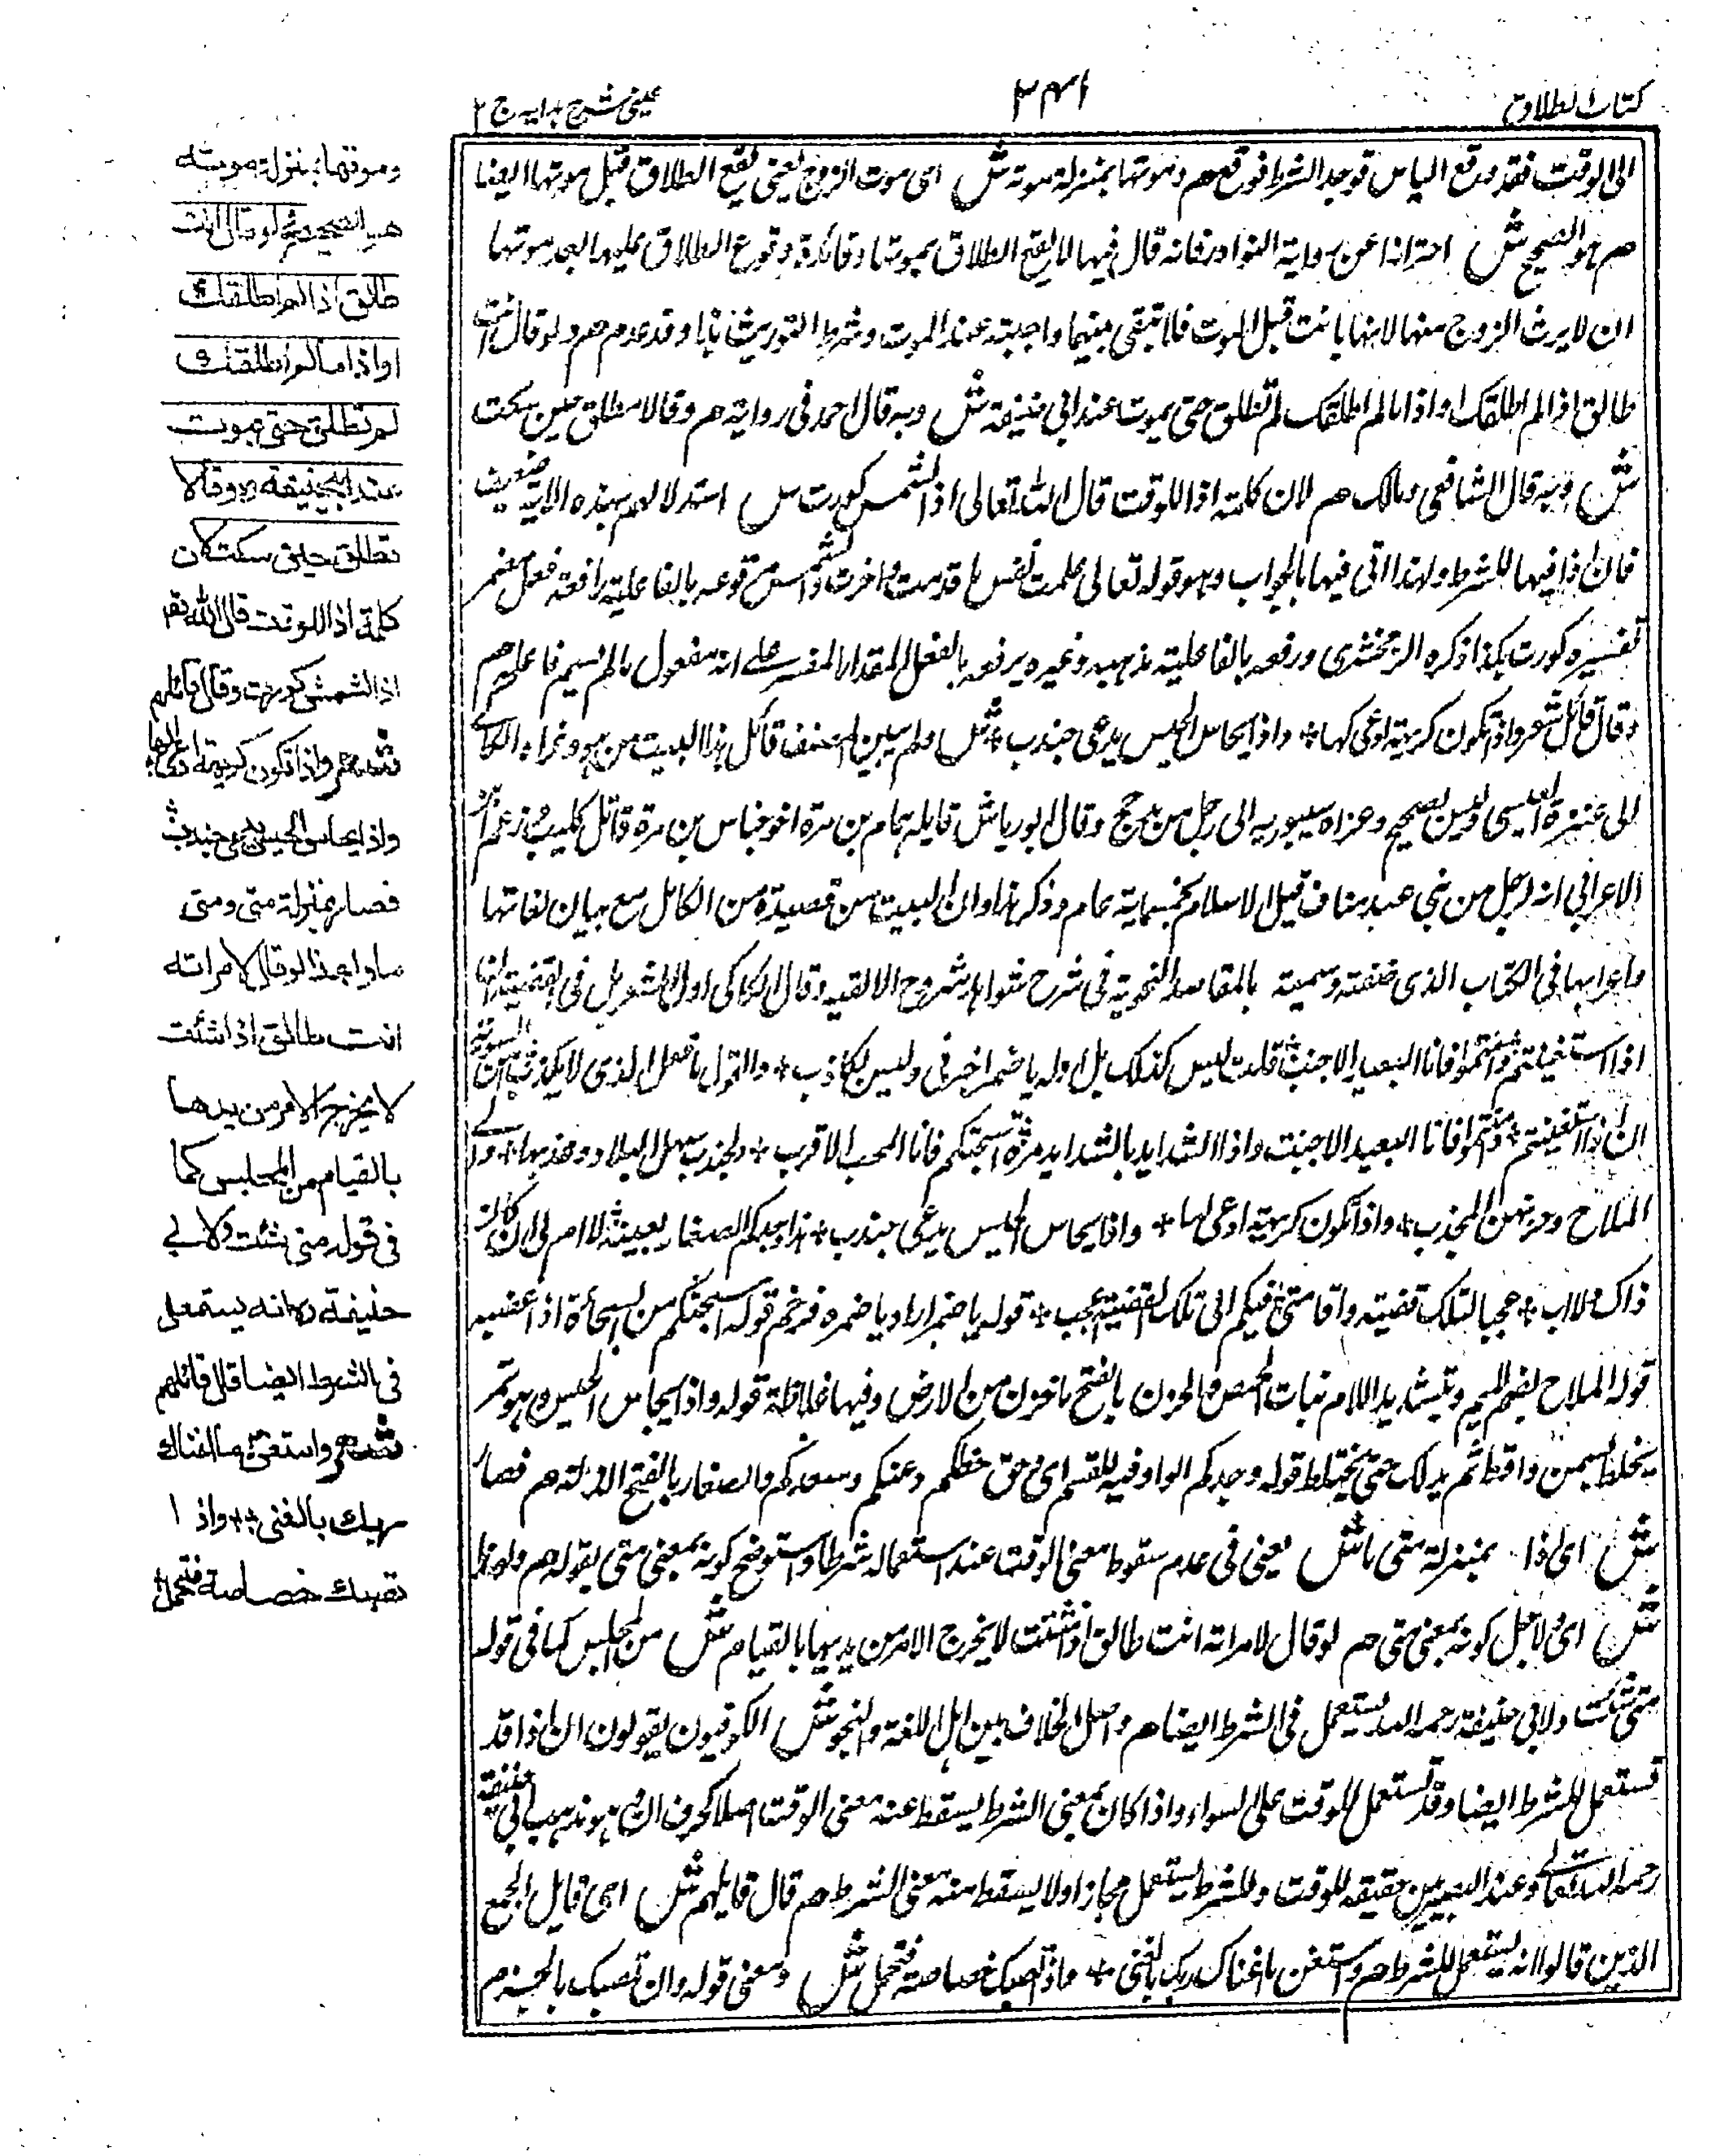 كتاب الطلاق
٣٤١
عینی شرح ہدایہ ج ٢
الى الوقت فقد وقع الیاس فوجد الشرط فوقع هم وموتها بمنزلة موته ش اى موت الزوج یعنى یقع الطلاق قبل موتها ایضا
هم هو الصحیح ش احترازا عن روایة النوادر فانه قال فیها لا یقع الطلاق بموتها وفائدة وقوع الطلاق علیها بعد موتها
ان لا یرث الزوج منها لانها بانت قبل الموت فلا تبقى بینهما واجبة عند الموت وشرط التوریث هذا وقد عدم هم ولو قال انت
طالق اذا لم اطلقك او اذا ما لم اطلقك لم تطلق حتى یموت عند ابى حنیفة ش وبه قال احمد فى روایة هم وقالا تطلق حین سكت
ش وبه قال الشافعى ومالك هم لان كلمة اذا للوقت قال الله تعالى اذا الشمس كورت ش استدلالهم بهذه الآیة ضعیف
فان اذا فیها للشرط ولهذا اتى فیها بالجواب وهو قوله تعالى علمت نفس ما قدمت واخرت والشمس مرفوعه بالفاعلیة رافعه فعل مضمر
تفسیره كورت هكذا ذكره الزمخشرى ورفعه بالفاعلیة مذهبه وغیره یرفعه بالفعل المقدر المفسر على انه مفعول ما لم یسم فاعله هم
وقال قائل شعر واذا تكون كریهة ادعى لها + واذا یحاس الحیس یدعى جندب + ش ولم یبین المصنف قائل هذا البیت من هو وعزاه الكاكى
الى عنترة العبسى ولیس بصحیح وعزاه سیبویه الى رجل من مذحج وقال ابو ریاش قایله همام بن مرة اخو جساس بن مرة قاتل كلیب وزعم ابن
الاعرابى انه لرجل من بنى عبد مناف قبل الاسلام بخمسمایة عام وذكر هذا وان البیت من قصیدة من الكامل مع بیان لغاتها
واعرابها فى الكتاب الذى صنفته وسمیته بالمقاصد النحویة فى شرح شواهد شروح الالفیه وقال الكاكى اول الشعر هل فى القضیة ان
اذا استغنیتم وامنتم فانا البعید الاجنب قلت لیس كذلك بل اوله یا ضمر اخبرنى ولست بكاذب + والقول ما فعل الذى لا یكذب
ان اذا استغنیتم وامنتم فانا البعید الاجنب واذا الشداید بالشداید مرة اشجتكم فانا المحب الاقرب + ولجندب سهل البلاد وعذبها + ولى
الملاح وحزنهن المجدب + واذا تكون كریهة ادعى لها + واذا یحاس الحیس یدعى جندب + هذا وجدكم الصغار بعینه لا ام لى ان كان
ذاك ولا اب + عجبا لتلك قضیة واقامتى فیكم الى تلك القضیة اعجب + قوله یا ضمر اراد یا ضمرة فرخم قوله اشجتكم من اشجاه اذا اغضبه
قوله الملاح بضم المیم وتشدید اللام نبات الحمض والحزن بالفتح ما حزن من الارض وفیها غلاظة قوله واذا یحاس الحیس وهو تمر
یخلط بسمن واقط ثم یدلك حتى یختلط قوله وجدكم الواو فیه للقسم اى وحق حظكم وغنیكم وسعدكم والصغار بالفتح الذلة هم فصار
ش اى اذا بمنزلة متى ما ش یعنى فى عدم سقوط معنى الوقت عند استعماله شرطا واستوضح كونه بمعنى متى بقوله هم ولهذا
ش اى ولاجل كونه بمعنى متى هم لو قال لامراته انت طالق اذا شئت لا یخرج الامر من یدیها بالقیام ش من المجلس كما فى قوله
متى شئت ولابى حنیفة رحمه الله یستعمل فى الشرط ایضا هم واصل الخلاف بین اهل اللغة والنحو ش الكوفیون یقولون ان اذا قد
تستعمل للشرط ایضا وقد تستعمل للوقت على السواء واذا كان بمعنى الشرط یسقط عنه معنى الوقت اصلا كحرف ان وهو مذهب ابى حنیفة
رحمه الله تعالى وعند البصریین حقیقه للوقت وللشرط یستعمل مجازا ولا یسقط منه معنى الشرط هم قال قایلهم ش اى قایل الجمع
الذین قالوا انه یستعمل للشرط هم واستغن ما اغناك ربك بالغنى + واذا تصبك خصاصة فتحمل ش ومعنى قوله وان تصبك بالجزم
وموتها بمنزلة موته
هو الصحیح ولو قال انت
طالق اذا لم اطلقك
او اذا ما لم اطلقك
لم تطلق حتى یموت
عند ابیحنیفة رہ وقالا
تطلق حین سكت لان
كلمة اذا للوقت قال الله تعم
اذا الشمس كورت وقال قائلهم
شعر واذا تكون كریهة ادعى لها
واذا یحاس الحیس یدعى جندب
فصار بمنزلة متى ومتى
ما ولهذا لو قال لامراته
انت طالق اذا شئت
لا یخرج الامر من یدها
بالقیام من المجلس كما
فى قوله متى شئت ولابى
حنیفة رہ انه یستعمل
فى الشرط ایضا قال قائلهم
شعر واستغن ما اغناك
ربك بالغنى + واذا
تصبك خصاصة فتحمل